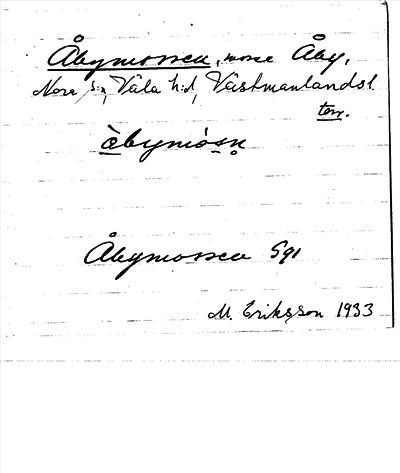 Åbymossen, mosse Åby,
Nora sn, Våla hd, Västmanlands l.
terr.
åbymósn̥
Åbymossen Sgl
M. Eriksson 1933